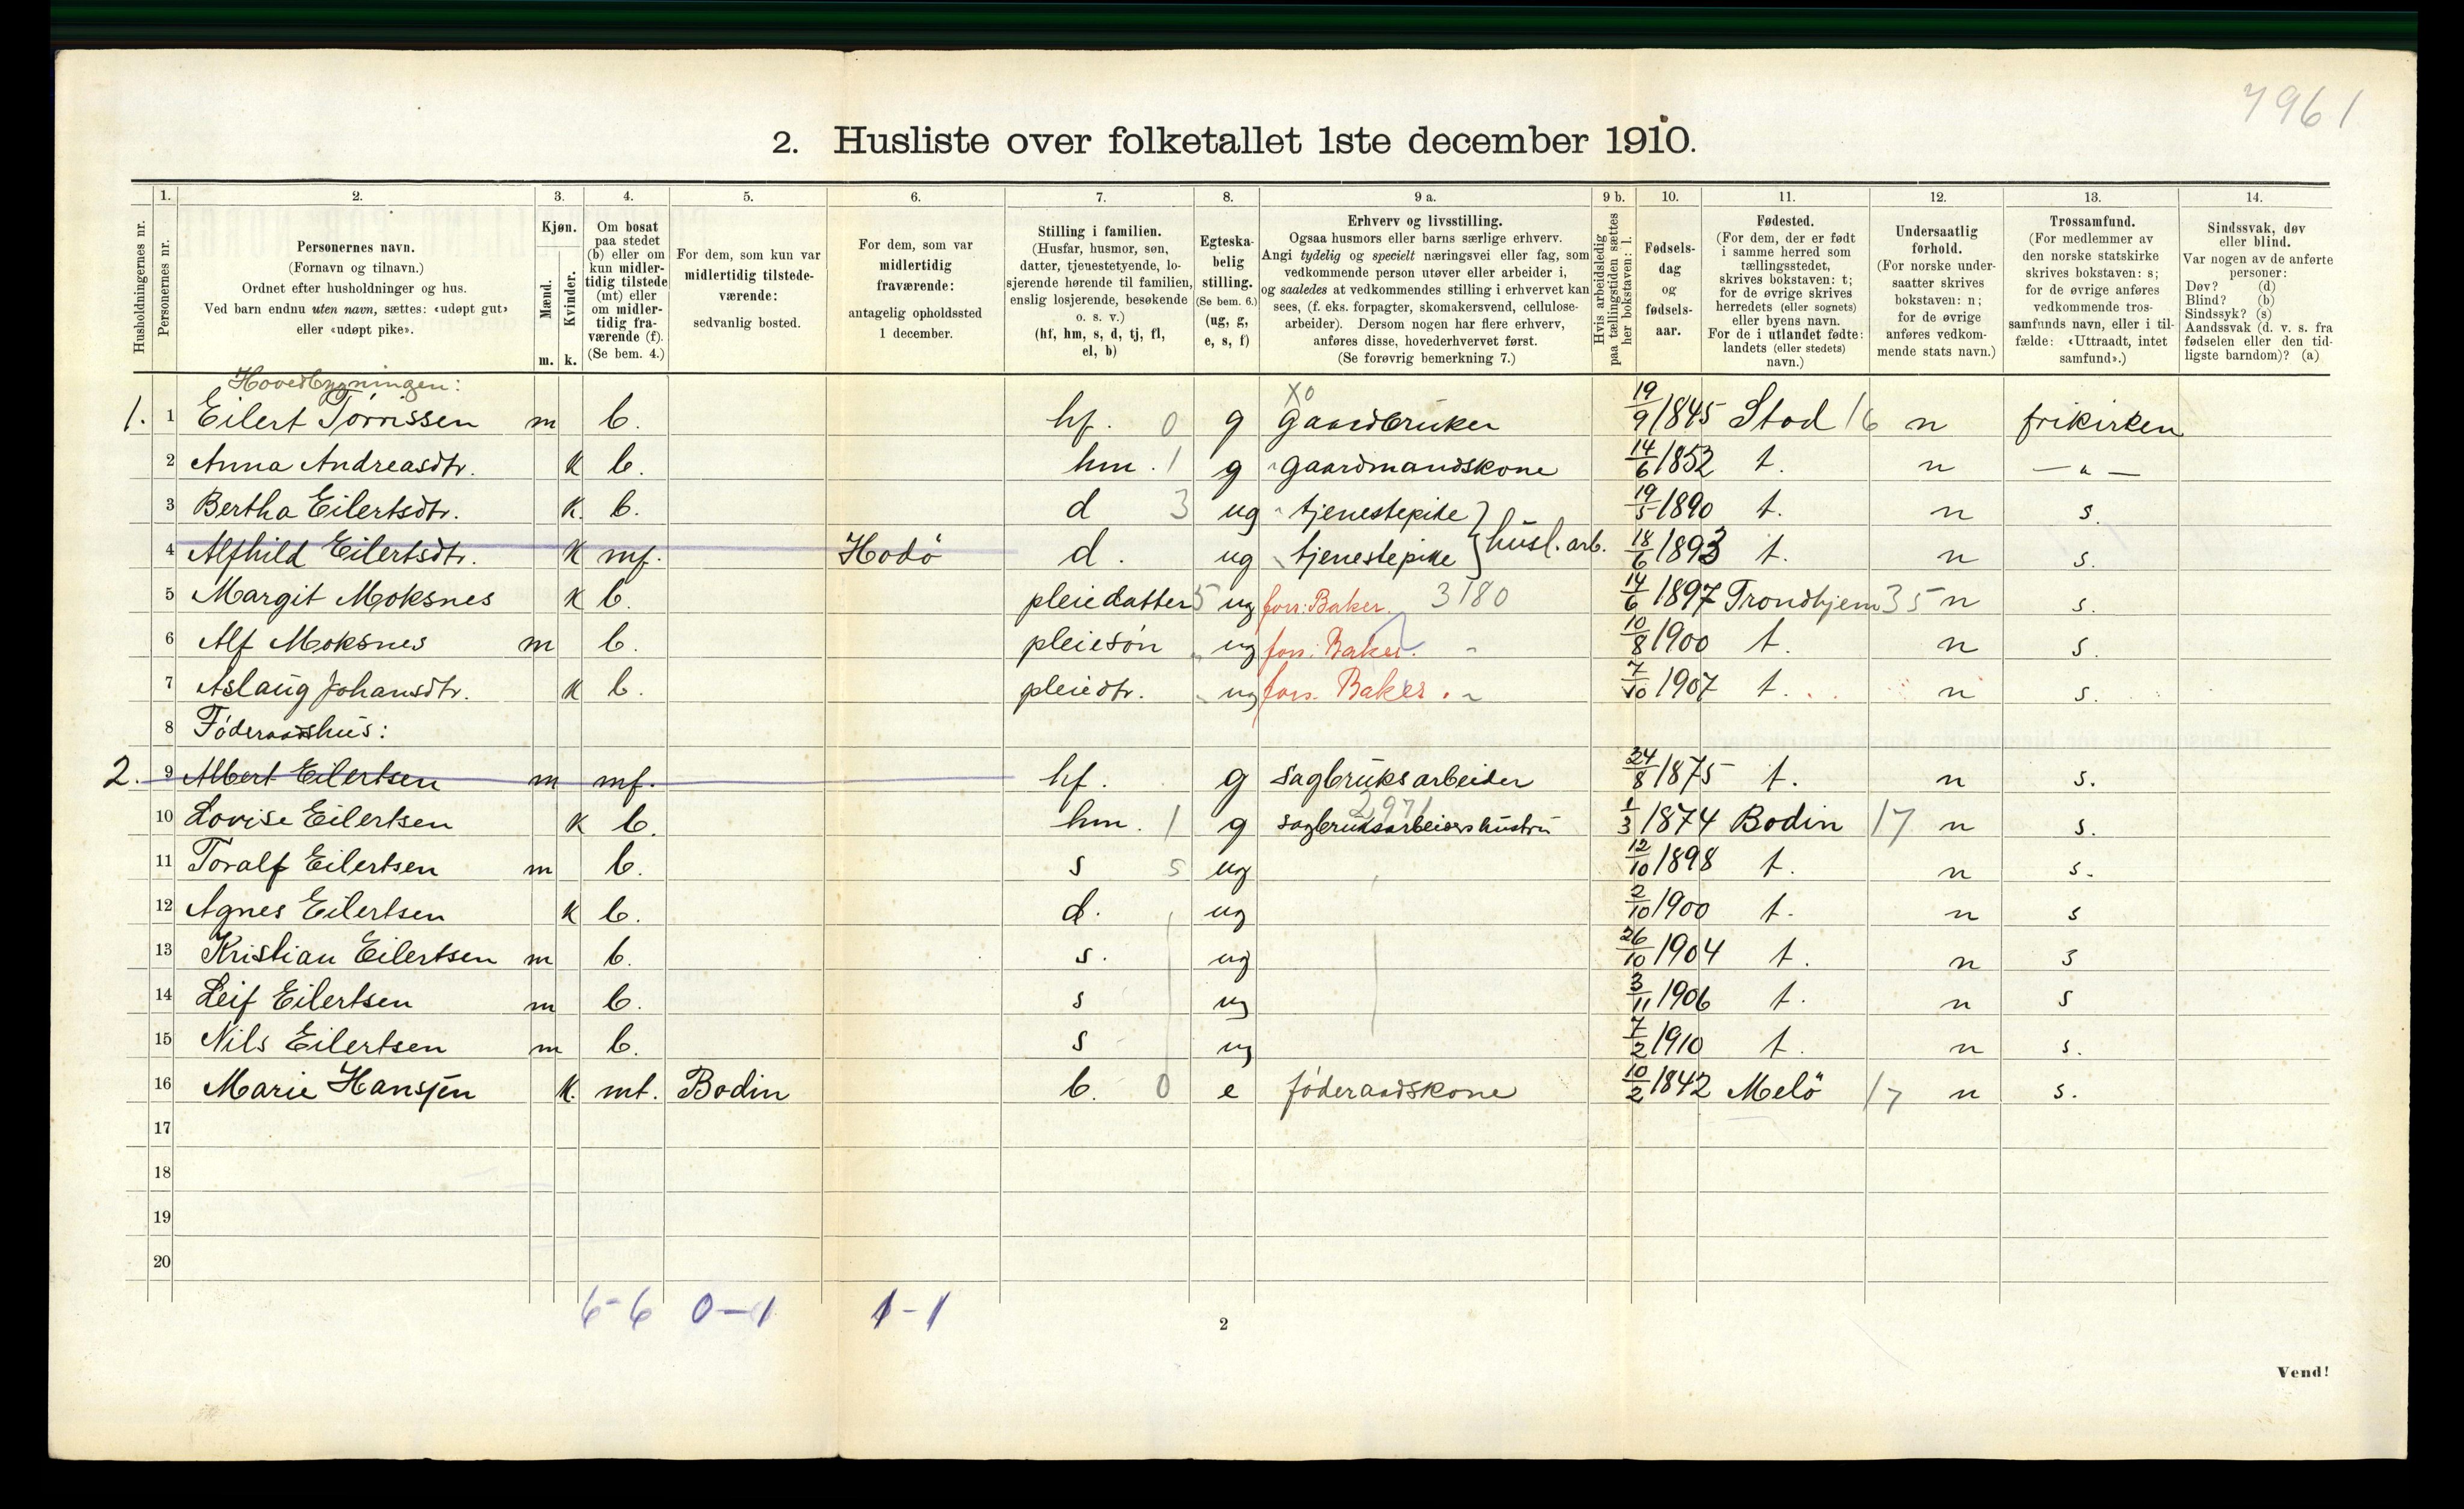 7961
2. Husliste over folketallet 1ste december 1910.
1. 2. 3. 4. 5. 6. 7. 8. 9 a. 9 b. 10. 11. 12. 13. 14.
Husholdningernes nr.
Personernes nr.
Personernes navn.
(Fornavn og tilnavn.)
Ordnet efter husholdninger og hus.
Ved barn endnu uten navn, sættes: «udøpt gut»
eller «udøpt pike».
Kjøn.
Mænd.
Kvinder.
m. k.
Om bosat
paa stedet
(b) eller om
kun midler-
tidig tilstede
(mt) eller
om midler-
tidig fra-
værende (f).
(Se bem. 4.)
For dem, som kun var
midlertidig tilstede-
værende:
sedvanlig bosted.
For dem, som var
midlertidig
fraværende:
antagelig opholdssted
1 december.
Stilling i familien.
(Husfar, husmor, søn,
datter, tjenestetyende, lo-
sjerende hørende til familien,
enslig losjerende, besøkende
o. s. v.)
(hf, hm, s, d, tj, fl,
el, b)
Egteska-
belig
stilling.
(Se bem. 6.)
(ug, g,
e, s, f)
Erhverv og livsstilling.
Ogsaa husmors eller barns særlige erhverv.
Angi tydelig og specielt næringsvei eller fag, som
vedkommende person utøver eller arbeider i,
og saaledes at vedkommendes stilling i erhvervet kan
sees, (f. eks. forpagter, skomakersvend, cellulose-
arbeider). Dersom nogen har flere erhverv,
anføres disse, hovederhvervet først.
(Se forøvrig bemerkning 7.)
Hvis arbeidsledig
paa tællingstiden sættes
her bokstaven: l.
Fødsels-
dag
og
fødsels-
aar.
Fødested.
(For dem, der er født
i samme herred som
tællingsstedet,
skrives bokstaven: t;
for de øvrige skrives
herredets (eller sognets)
eller byens navn.
For de i utlandet fødte:
landets (eller stedets)
navn.)
Undersaatlig
forhold.
(For norske under-
saatter skrives
bokstaven: n;
for de øvrige
anføres vedkom-
mende stats navn.)
Trossamfund.
(For medlemmer av
den norske statskirke
skrives bokstaven: s;
for de øvrige anføres
vedkommende tros-
samfunds navn, eller i til-
fælde: «Uttraadt, intet
samfund».)
Sindssvak, døv
eller blind.
Var nogen av de anførte
personer:
Døv? (d)
Blind? (b)
Sindssyk? (s)
Aandssvak (d. v. s. fra
fødselen eller den tid-
ligste barndom)? (a)
Hovedbygningen:
1. 1 Eilert Tørrissen m b. hf. 0 g X0 gaardbruker 19/9 1845 Stod 16 n frikirken
2 Anna Andreasdtr. k b. hm. 1 g gaardmandskone 14/6 1852 t. n — " —
3 Bertha Eilertsdtr. k. b. d 3 ug tjenestepike } husl. arb. 19/5 1890 t. n s.
4 Alfhild Eilertsdtr. k mf. Hodö d. ug tjenestepike 18/6 1893 t. n s.
5 Margit Moksnes k b. pleiedatter 5 ug fors: Baker. 3180 14/6 1897 Trondhjem 35 n s.
6 Alf Moksnes m b. pleiesön " ug fors: Baker. " 10/8 1900 t. n s.
7 Aslaug Johansdtr. k b. pleiedtr. " ug fors. Baker. " 7/10 1907 t. n s.
8 Föderaadshus:
2. 9 Albert Eilertsen m mf. hf. g sagbruksarbeider 24/8 1875 t. n s.
2971
10 Lovise Eilertsen k b. hm. 1 g sagbruksarbeidershustru 1/3 1874 Bodin 17 n s.
11 Toralf Eilertsen m b. s 5 ug 12/10 1898 t. n s.
12 Agnes Eilertsen k b. d. ug 2/10 1900 t. n s
13 Kristian Eilertsen m b. s. ug 26/10 1904 t. n s
14 Leif Eilertsen m b. s ug 3/11 1906 t. n s
15 Nils Eilertsen m b. s ug 7/2 1910 t. n s.
16 Marie Hansen k. mt. Bodin b. 0 e föderaadskone 10/2 1842 Melö 17 n s.
17
18
19
20
6-6 0-1 1-1
2
Vend!